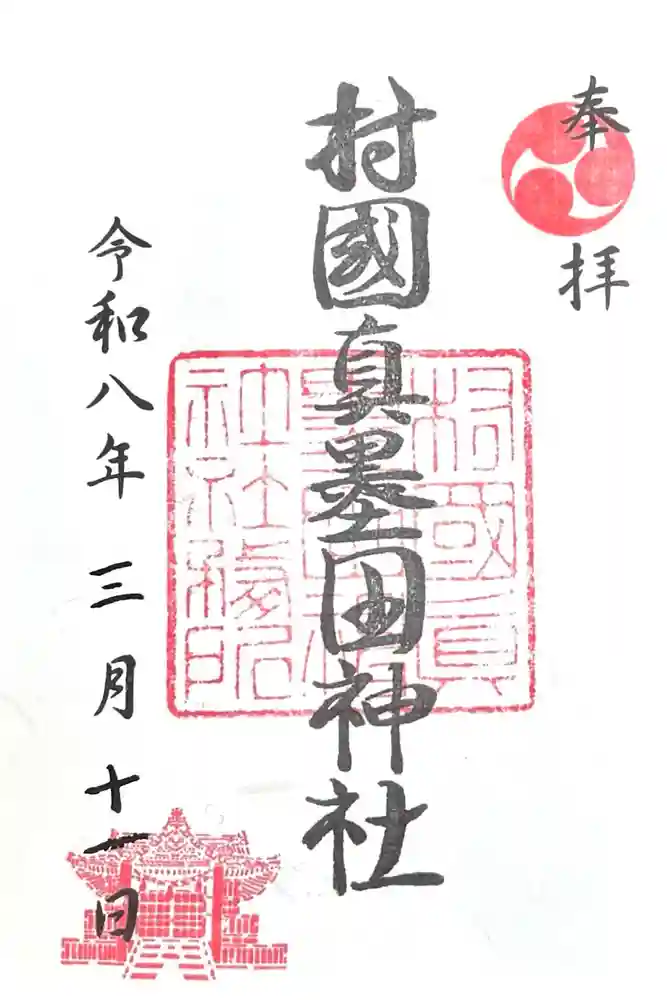 奉拝
村國真墨田神社
令和八年三月十一日
村國真
神社務所